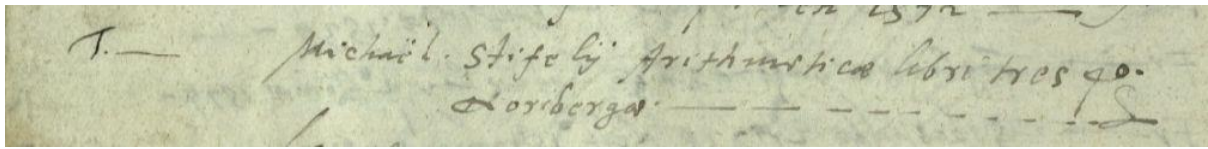 in 1572
T.— Michaël. Stifelij Arithmeticæ libri tres 4o.
Noribergæ.